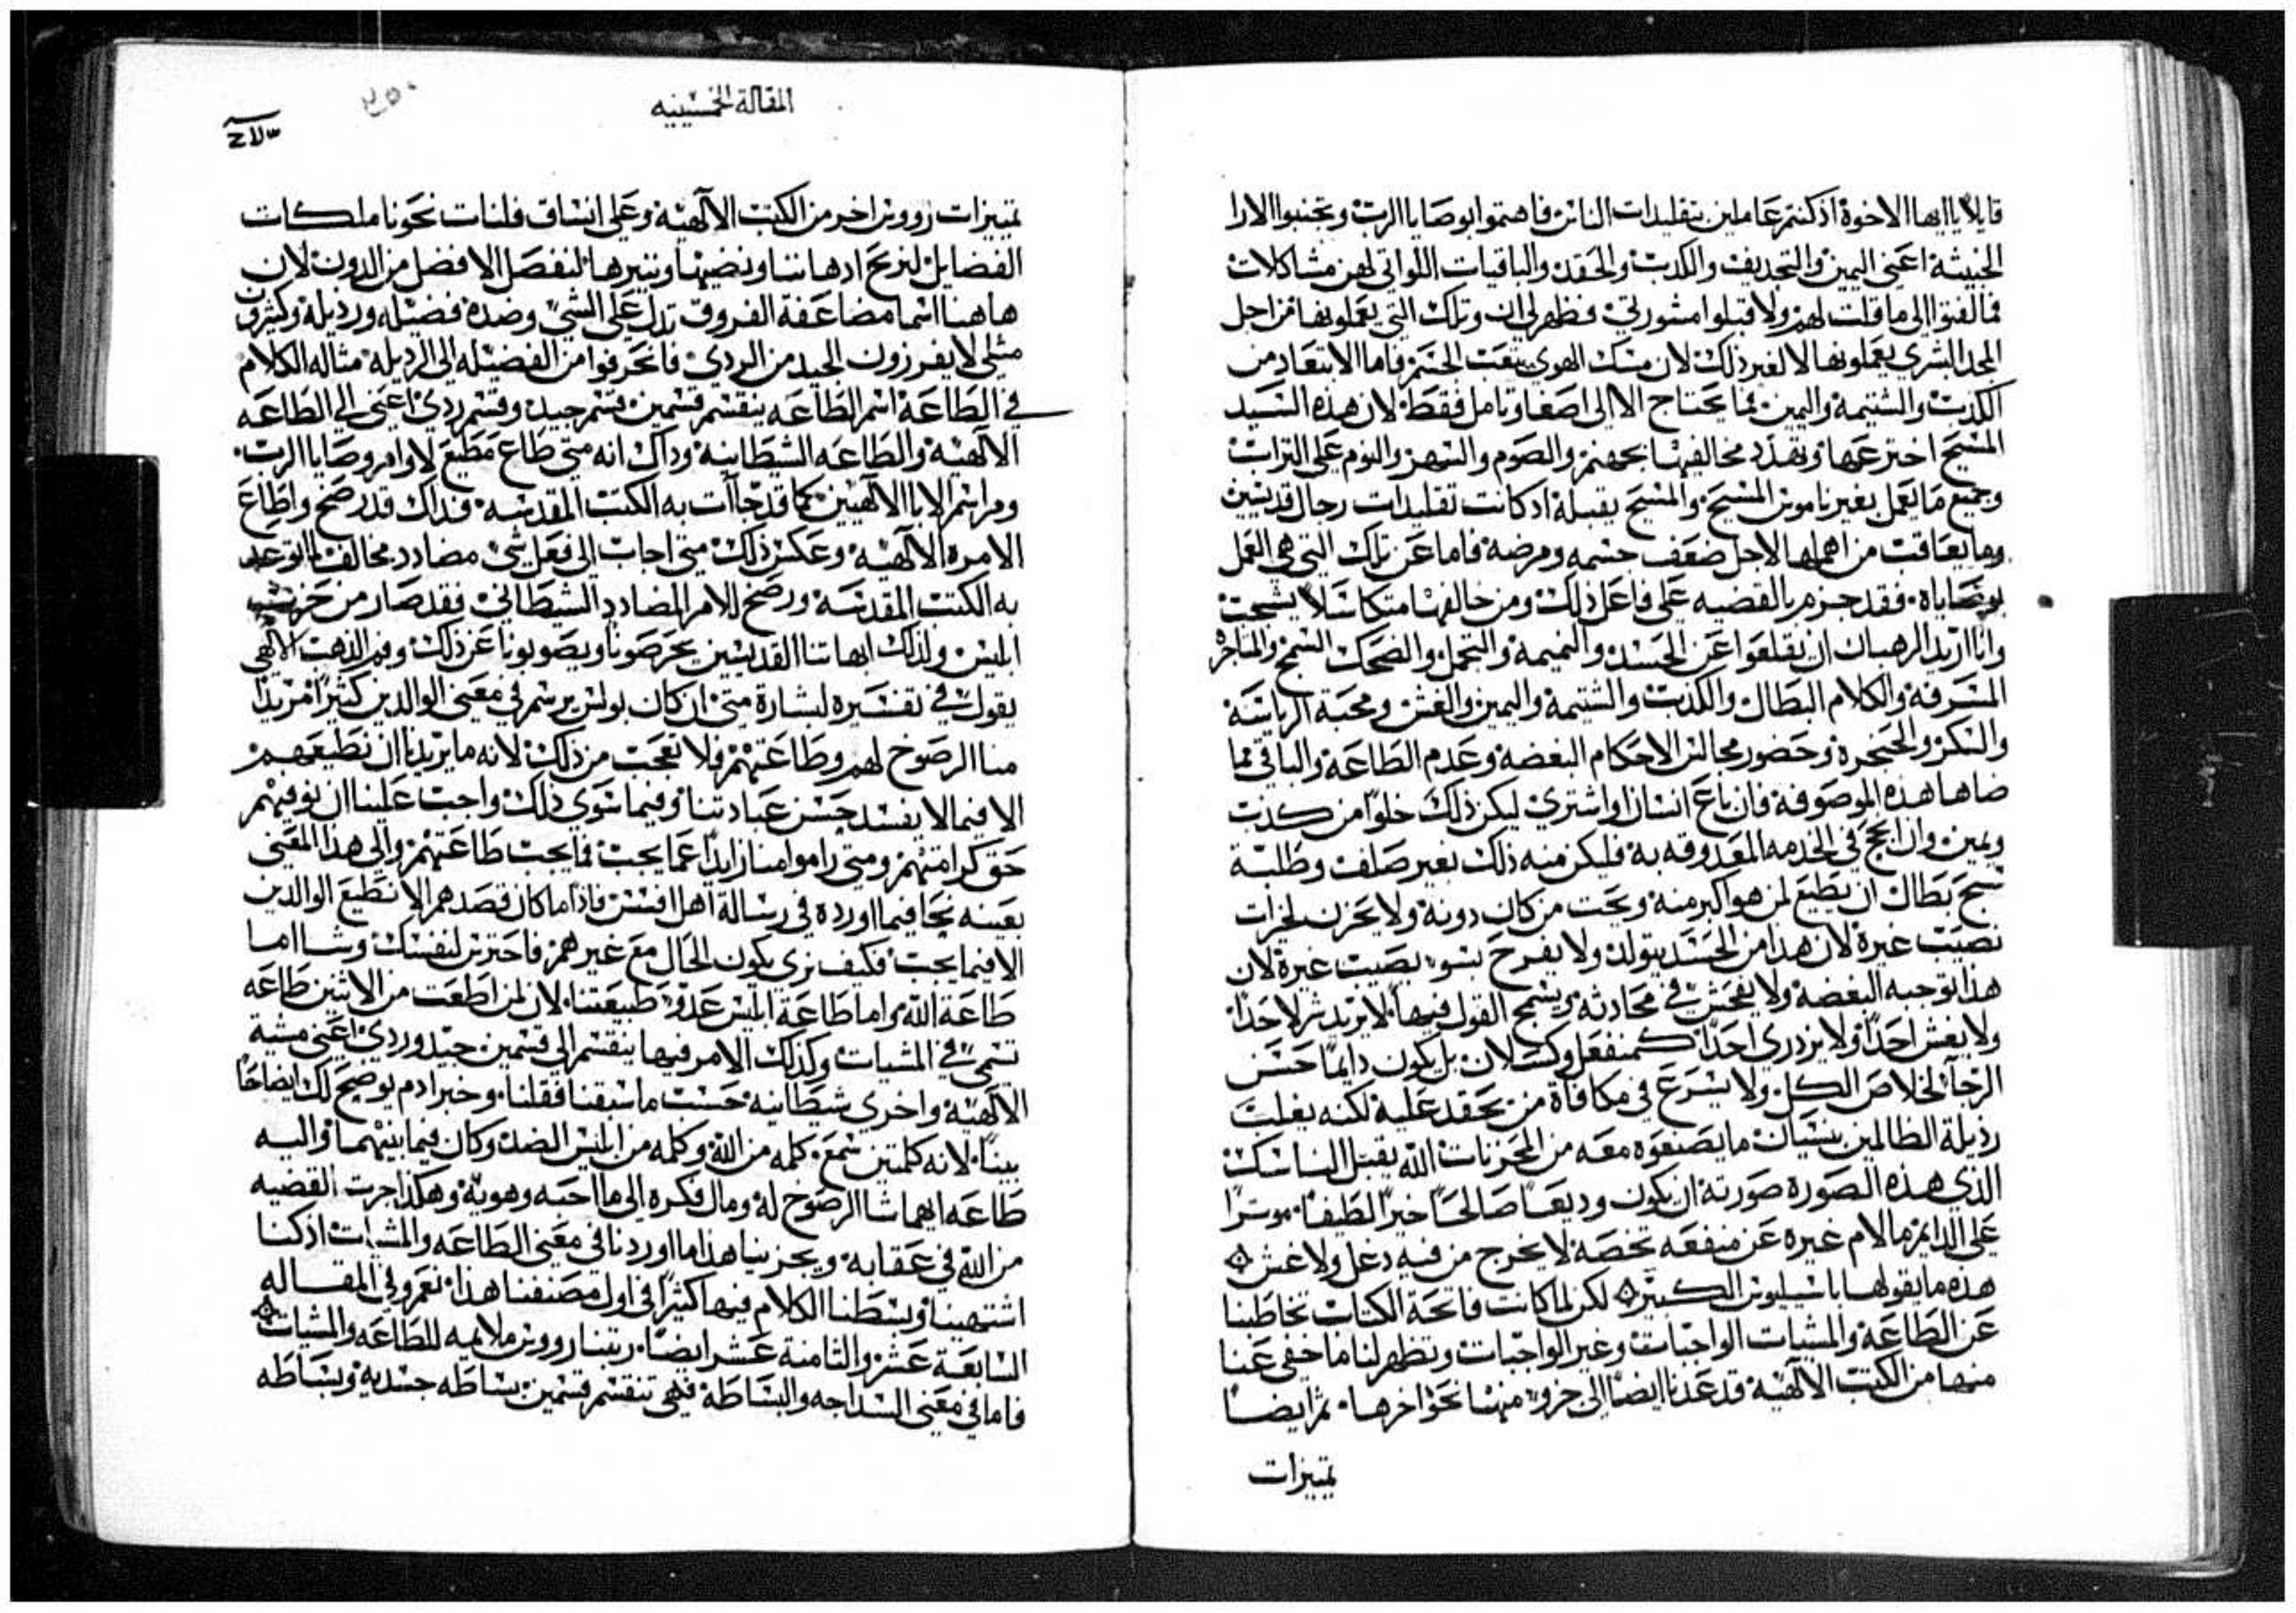 قايلاً يا ايها الاخوة اذ كنتم عاملين بتقليدات الناس فاهتموا بوصايا الرب وتجنبوا الارا
الخبيثة اعني اليمين والتجديف والكذب والحقد والباقيات اللواتي لهن مشاكلات
فما التفتوا الى ما قلت لهم ولا قبلوا مشورتي فظهر لي ان وتلك التي يعملونها من اجل
المجد البشري يعملونها لا لغير ذلك لان مسك الهوى يتعب الختم فاما الابتعاد من
الكذب والشتيمة واليمين فما يحتاج الا الى اصغا وتامل فقط لان هذه السيد
المسيح اخترعها وتهدد مخالفيها بجهنم والصوم والسهر والنوم على التراب
وجميع ما يعمل بغير ناموس المسيح والمسيح يقبله اذ كانت تقليدات رجال قديسين
وما يعاقب من اهملها لاجل ضعف جسمه ومرضه فاما عن تلك التي هي العمل
بوصاياه فقد جزم بالقضيه على فاعل ذلك ومن خالفها متكاسلاً يشجب
وانا اريد الرهبان ان يقلعوا عن الحسد والنميمة والتجمل والضحك السمج والمناخر
المسرفة والكلام البطال والكذب والشتيمة واليمين والغش ومحبة الرياسة
والسكر والحنجرة وحضور مجالس الاحكام البغضه وعدم الطاعة والباقي مما
ضاها هذه الموصوفة فان باع انسان او اشترى ليكن ذلك خلواً من كذب
ويمين وان نجح في الخدمه المعدوقه به فليكن منه ذلك بغير صلف وطلبة
سبح بطال ان يطيع لمن هو اكبر منه ويحب من كان دونه ولا يحزن لخيرات
تصيب غيره لان هذا من الحسد يتولد ولا يفرح بسوء يصيب غيره لان
هذا توجبه البغضه ولا يفحش في محادثه ويسمج القول فيها لا يريد شر لاحد
ولا يغش احداً ولا يزدري احداً كمنفعل وكسلان بل يكون دايماً حسن
الرجآ لخلاص الكل ولا يسرع في مكافاة من يحقد عليه لكنه يغلب
رذيلة الظالمين بنسيان ما يصنعوه معه من المحزنات الله يقبل الناسك
الذي هذه الصورة صورته ان يكون وديعاً صالحاً خيراً لطيفاً موثراً
على الدايم ما لام غيره عن منفعه تخصه لا يخرج من فيه دغل ولا غش
هذه ما يقولها باسيليوس الكبير لكن لما كانت فاتحة الكتاب تخاطبنا
عن الطاعة والمشيات الواجبات وغير الواجبات وتظهر لنا ما خفي عنا
منها من الكتب الالهية قد عدنا ايضاً الى جزو منها نحو اخرها ثم ايضاً
تمييزات
المقالة الخمسينيه
٢٥٠
تمييزات رووس اخر من الكتب الالهية وعلى انساق فلنات نحونا ملكات
الفضايل لنربح اذهاننا ونضيها وننيرها لنفصل الافضل من الدون لان
هاهنا اسما مضاعفة الفروق تدل على الشي وضده فضيله ورذيلة وكثيرون
مثلي لا يفرزون الجيد من الردي فانحرفوا من الفضيله الى الرذيله مثاله الكلام
في الطاعة اسم الطاعه ينقسم قسمين قسم جيد وقسم ردي اعني الى الطاعه
الالهية والطاعه الشيطانية وذاك انه متى طاع مطيع لاوامر وصايا الرب
ومراسم الابا الالهيين كما قد جآت به الكتب المقدسه فذاك قد رضخ واطاع
الامره الالهيه وعكس ذلك متى اجاب الى فعل شي مضادد مخالف لما توعد
به الكتب المقدسه ورضخ للامر المضادد الشيطاني فقد صار من حزب
ابليس ولذلك ابهاتنا القديسين يحرصونا ويصوبونا عن ذلك وفم الذهب الالهي
يقول في تفسيره لبشارة متى ان كان بولس يرسم في معنى الوالدين كثيراً مريداً
منا الرضوخ لهم وطاعتهم فلا تعجب من ذلك لانه ما يريدنا ان نطيعهم
الا فيما لا يفسد حسن عبادتنا وفيما سوى ذلك واجب علينا ان نوفيهم
حق كرامتهم ومتى راموا منا زايداً عما يجب فما يجب طاعتهم والى هذا المعنى
بعينه نحا فيما اورده في رسالة اهل افسس فاذا ما كان قصدهم الا نطيع الوالدين
الا فيما يجب فكيف ترى يكون الحال مع غيرهم فاحترس لنفسك وشا اما
طاعة الله واما طاعة ابليس عدو طبيعتنا لان لمن اطعت من الاثنين طاعه
تسمى في المشيات وكذلك الامر فيها ينقسم الى قسمين جيد وردي اعني مشية
الالهية واخرى شيطانيه حسب ما سبقنا فقلنا وخبر ادم يوضح لك ايضاحاً
بيناً لانه كلمتين سمع كلمه من الله وكلمه من ابليس الضد وكان فيما بينهما واليه
طاعه ايهما شا الرضوخ له ومال فكره الى ما احبه وهويه وهكذا جرت القضيه
من الله في عقابه ويجزينا هذا ما اوردنا في معنى الطاعه والمشيات اذ كنا
اشتهينا وبسطنا الكلام فيها كثيراً في اول مصنفنا هذا نعم وفي المقاله
السابعة عشر والثامنة عشر ايضاً رتبنا رووس ملايمه للطاعه والمشيات
فاما في معنى السذاجه والبساطة فهي تنقسم قسمين بساطه جسديه وبساطه